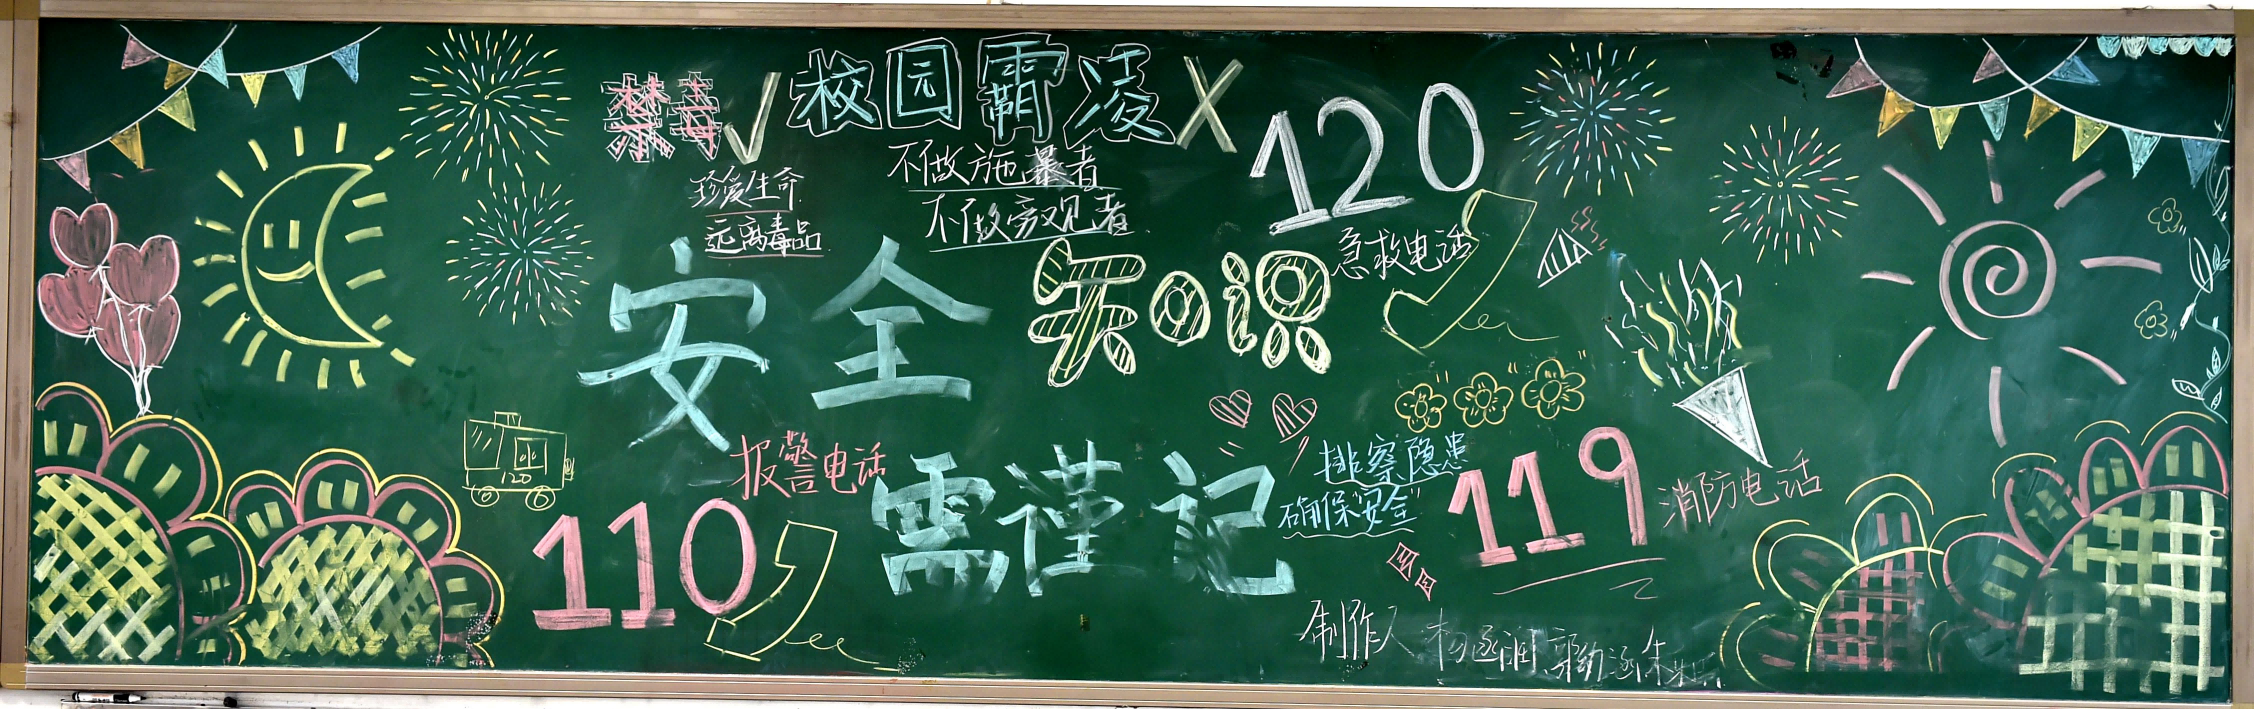 禁毒√
校园霸凌×
120
珍爱生命
远离毒品
不做施暴者
不做旁观者
急救电话
安全知识
120
报警电话
110
需谨记
排察隐患
确保安全
119
消防电话
制作人